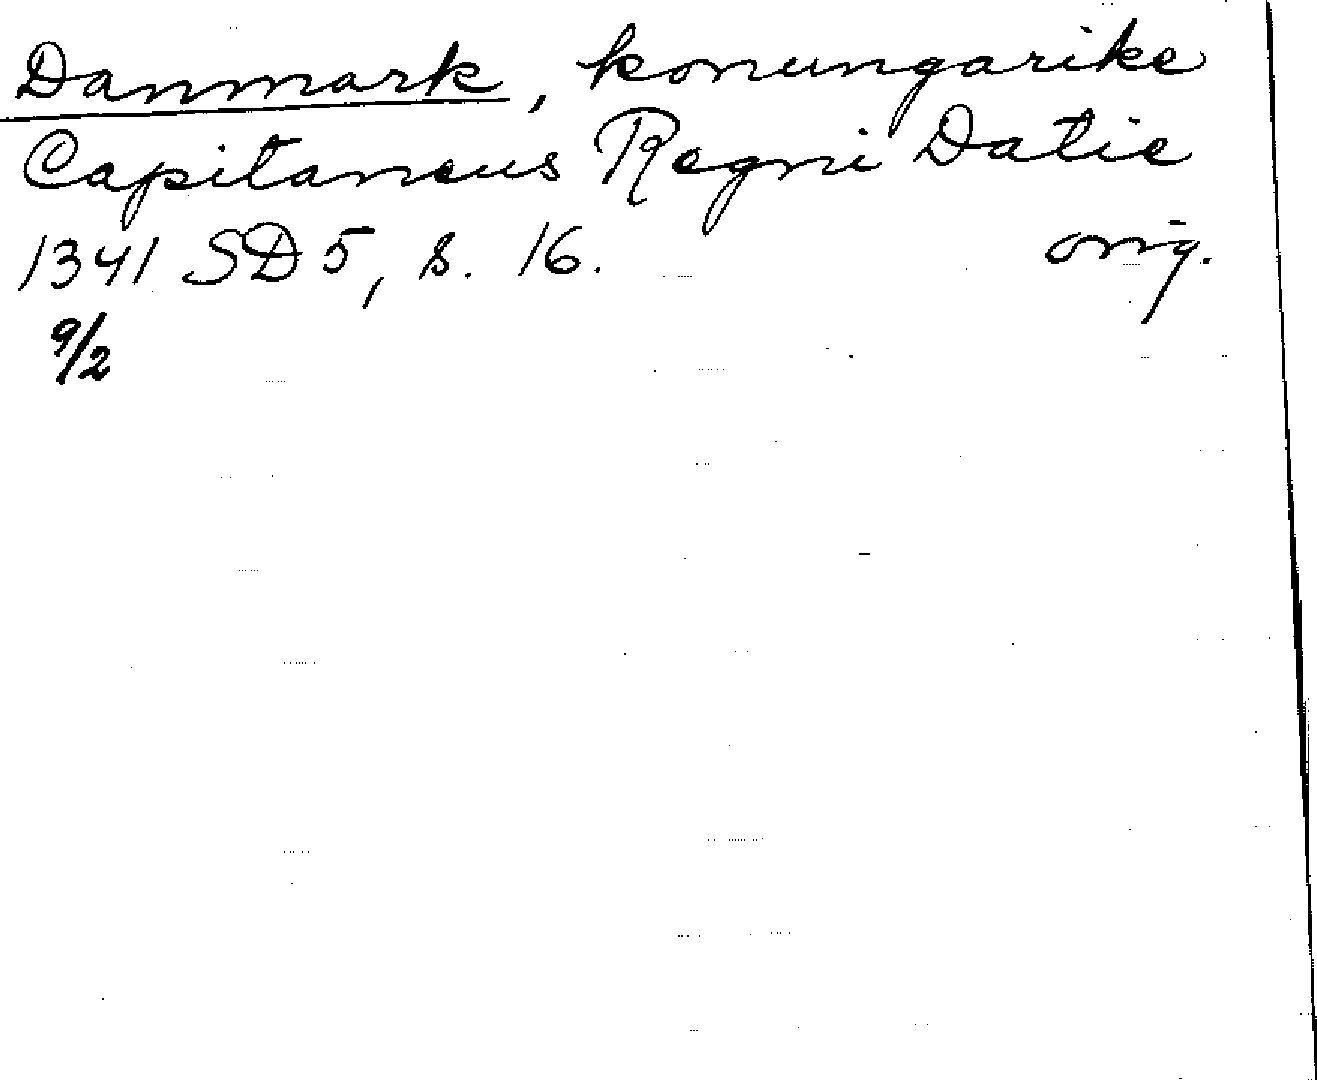 Danmark, konungarike
Capitaneus Regni Datie
1341 SD 5, s. 16. orig.
9/2